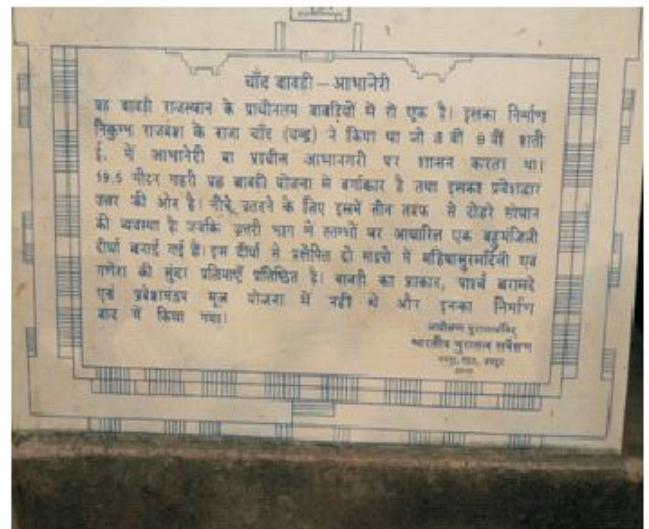 चाँद बावडी – आभानेरी
यह बावडी राजस्थान के प्राचीनतम बावडियों में से एक है। इसका निर्माण
निकुम्भ राजवंश के राजा चाँद (चन्द्र) ने किया था जो 8 वीं 9 वीं शती
ई. में आभानेरी वा प्राचीन आभानगरी पर शासन करता था।
19.5 मीटर गहरी यह बावडी योजना में वर्गाकार है तथा इसका प्रवेशद्वार
उत्तर की ओर है। नीचे उतरने के लिए इसमें तीन तरफ से दोहरे सोपान
की व्यवस्था है जबकि उत्तरी भाग में स्तम्भों पर आधारित एक बहुमंजिली
दीर्घा बनाई गई है। इस दीर्घा से प्रक्षेपित दो मण्डपों में महिषासुरमर्दिनी एवं
गणेश की सुंदर प्रतिमाएँ प्रतिष्ठित है। बावडी का प्राकार, पार्श्व बरामदे
एवं प्रवेशमंडप मूल योजना में नहीं थे और इनका निर्माण
बाद में किया गया।
अधीक्षण पुरातत्वविद्
भारतीय पुरातत्व सर्वेक्षण
जयपुर